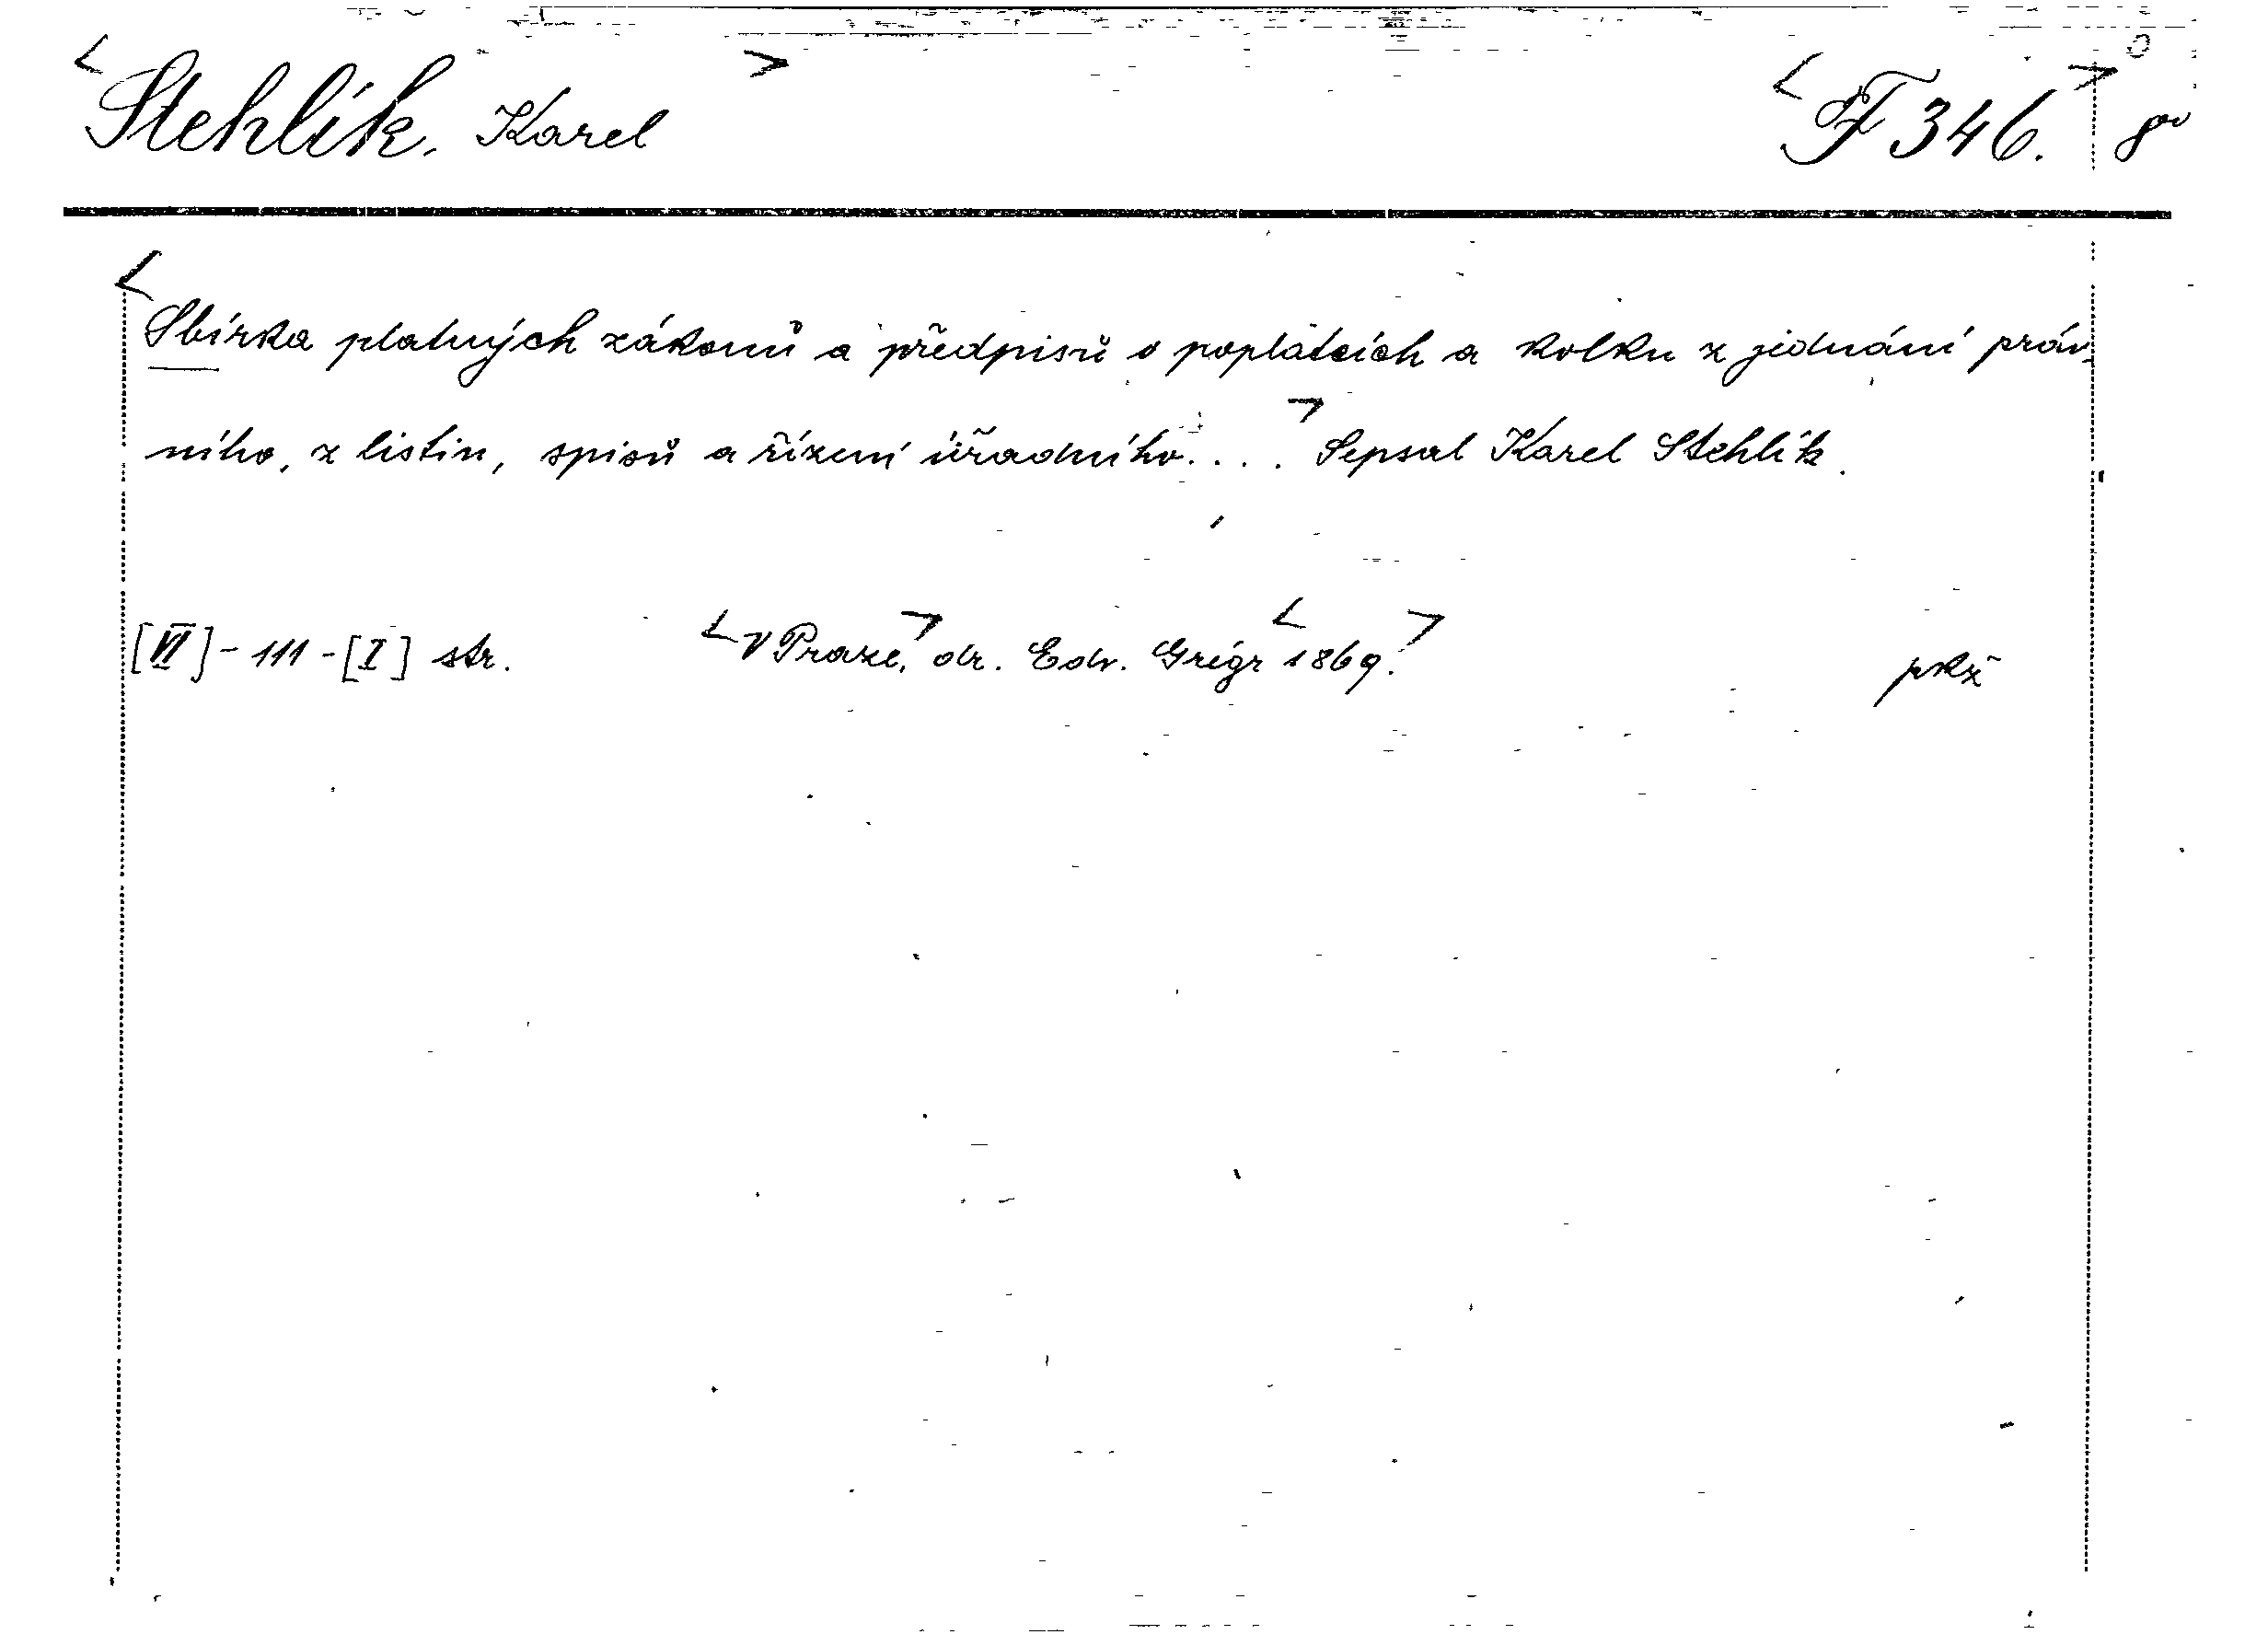 <Stehlík, Karel> <F 346.> 8°
<Sbírka platných zákonů a předpisů o poplatcích a kolku z jednání práv-
ního, z listin, spisů a řízení úřadního....> Sepsal Karel Stehlík.
[VI] - 111 - [I] str. <V Praze,> dr. Edv. Grégr <1869.> pkž